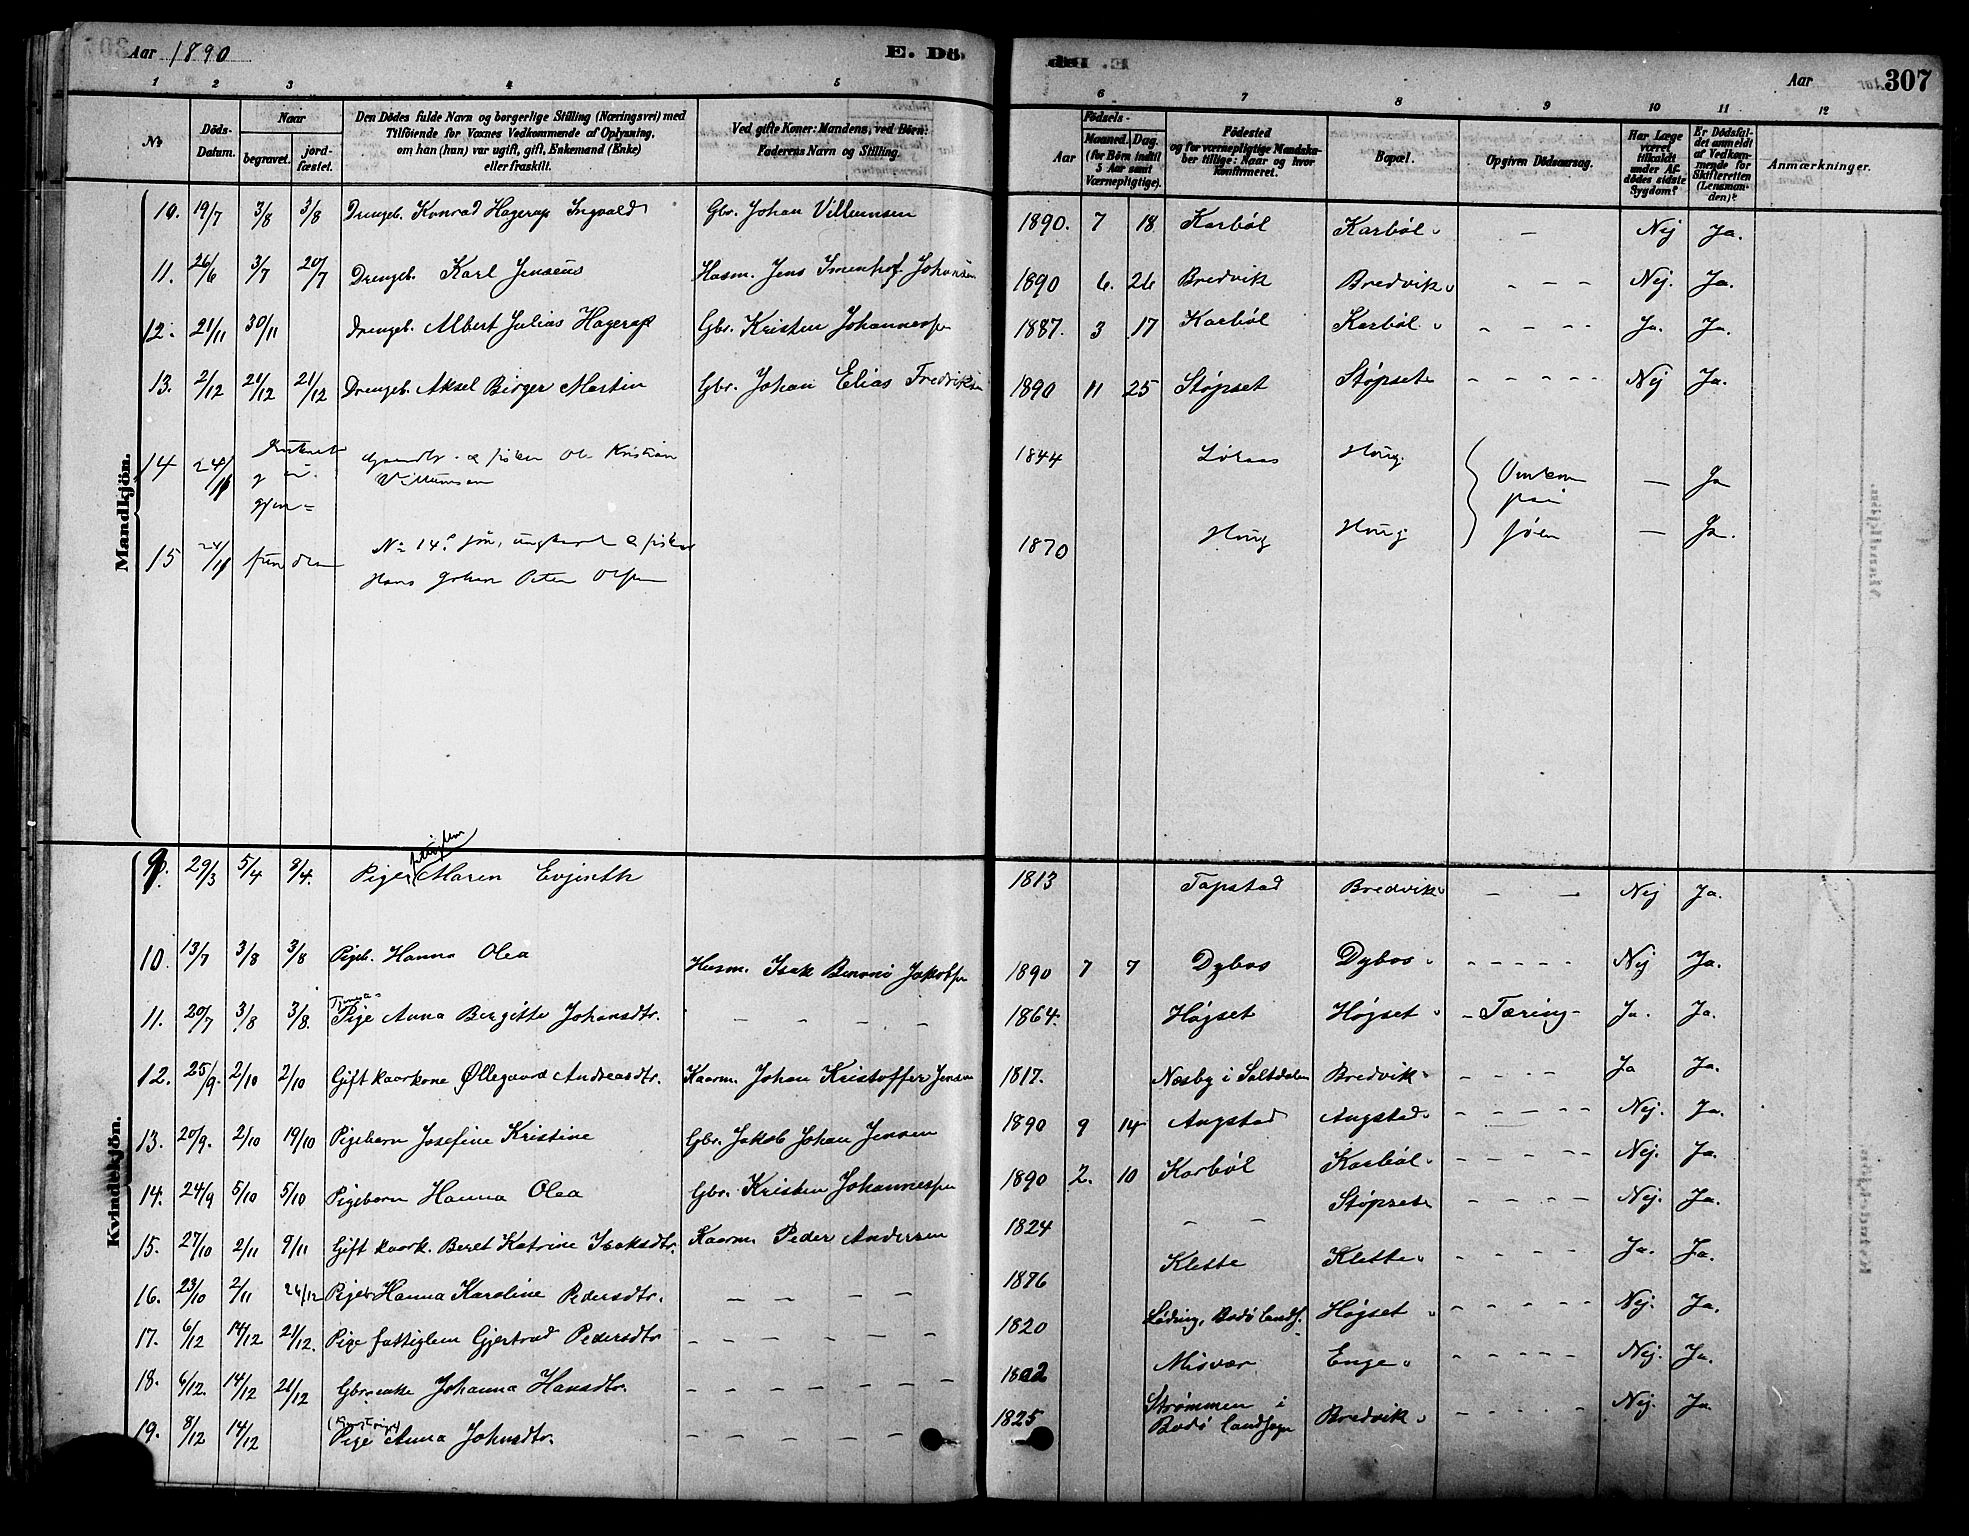 Aar 1890
E. Dö
E. Dö
Aar
307
1 2 3 4 5 6 7 8 9 10 11 12
No
Döds-Datum.
Naar
begravet.
jord-fæstet.
Den Dödes fulde Navn og borgerlige Stilling (Næringsvei) med
Tilföiende for Voxnes Vedkommende af Oplysning,
om han (hun) var ugift, gift, Enkemand (Enke)
eller fraskilt.
Ved gifte Koner: Mandens, ved Börn:
Faderens Navn og Stilling.
Födsels-
Aar
Maaned. Dag.
(for Börn indtil
5 Aar samt
Værnepligtige).
Födested
og for værnepligtige Mandska-
ber tillige: Naar og hvor
konfirmeret.
Bopæl.
Opgiven Dödsaarsag.
Har Læge
været
tilkaldt
under Af-
dödes sidste
Sygdom?
Er Dödsfal-
det anmeldt
af Vedkom-
mende for
Skifteretten
(Lensman-
den)?
Anmærkninger.
Mandkjön.
10. 19/7 3/8 3/8 Drengeb. Konrad Hagerup Ingvald Gbr. Johan Villumsen 1890. 7 18 Karbøl Karbøl - Nej Ja.
11. 26/6 3/7 20/7 Drengeb. Karl Jenseus Husm. Jens Johansen 1890 6. 26 Bredvik Bredvik - - - Nej. Ja.
12. 21/11 30/11 Drengeb. Albert Julius Hagerup Gbr. Kristen Johannessen 1887. 3 17 Karbøl Karbøl - - - - - Ja. Ja.
13. 2/12 21/12 21/12 Drengeb. Aksel Birger Martin Gbr. Johan Elias Fredriksen 1890 11 25 Støpset Støpset - - - - - Nej Ja.
14 24/11 Gaardbr. & fisker Ole Kristian
Villumsen 1844 Haug Omkom
paa - Ja
15 24/11 funden No 14s søn, ungkarl & fisker
Hans Johan Peter Olsen 1870 Haug Haug sjøen - Ja.
Kvindekjön.
9. 29/3 5/4 8/4. Pige, fattiglem Maren Evjenth 1813 Tapstad Bredvik - - Nej Ja.
10. 13/7 3/8 3/8 Pigeb. Hanna Olea Husm. Isak Benoni Jakobsen 1890 7 7 Dybos Dybos - - - - - Nej Ja.
11. 20/7 3/8 3/8. Pige Anna Bergitte Johansdtr. - - - - - 1864. Højset Højset - Tæring - Ja. Ja.
12. 25/9. 2/10 2/10 Gift kaarkone Øllegaard Andreasdtr. Kaarm. Johan Kristoffer Jensen 1817. Næsby i Saltdalen Bredvik - - - - Ja Ja.
13. 20/9. 2/10 19/10 Pigebarn Josefine Kristine Gbr. Jakob Johan Jensen 1890 9 14 Angstad Angstad - - - - - Nej. Ja.
14. 24/9 5/10 5/10 Pigebarn Hanna Olea Gbr. Kristen Johannessen 1890 2. 10 Karbøl Karbøl - - - - Nej. Ja.
15. 27/10 2/11 9/11 Gift kaark. Beret Katrine Isaksdtr. Kaarm. Peder Andersen 1824 - - Støpset - - - - Nej. Ja.
16. 23/10 2/11 26/12 Pige Hanna Karoline Pedersdtr. - - - - 1876 Klette Klette - - - - Ja. Ja.
17. 6/12 14/12 21/12. Pige fattiglem Gjertrud Pedersdtr - - - - - - 1820 Løding, Bodø lands. Højset - - - - - Nej. Ja.
18. 6/12. 14/12 26/12 Gbr.enke Johanna Hansdtr. - - - - - - - 1802 Misvær Enge - - - - Nej. Ja.
19. 8/12 14/12 Pige Anna Johnsdtr. - - - - - - 1825 Strømmen i
Bodø landsogn Bredvik - - - - Nej. Ja.